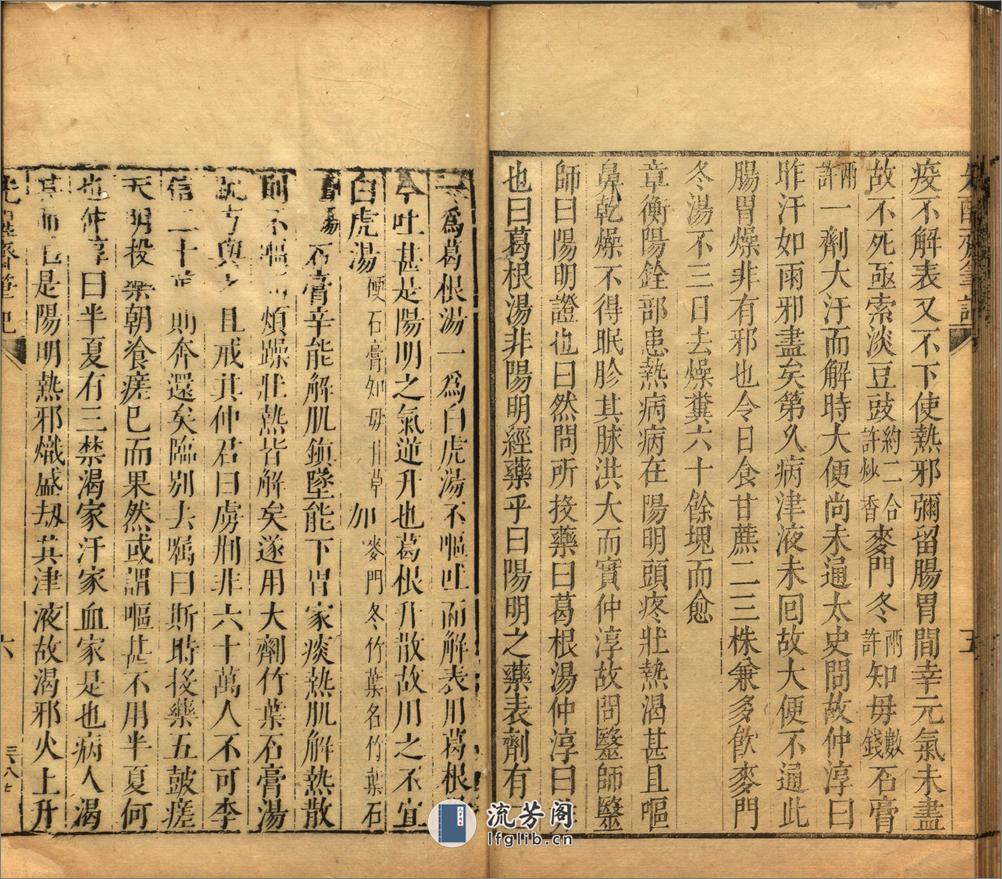 疫不解表又不下使熱邪彌留腸胃間幸元氣未盡
故不死亟索淡豆豉約二合許炒香麥門冬兩許知毋數錢石膏
兩許一劑大汗而解時大便尚未通太史問故仲淳曰
昨汗如雨邪盡矣第久病津液未回故大便不通此
腸胃燥非有邪也令日食甘蔗二三株兼多飲麥門
冬湯不三日去燥糞六十餘塊而愈
章衡陽銓部患熱病病在陽明頭疼壯熱渴甚且嘔
鼻乾燥不得眠胗其脉洪大而實仲淳故問醫師醫
師曰陽明證也曰然問所投藥曰葛根湯仲淳曰非
也曰葛根湯非陽明經藥乎曰陽明之藥表劑有二
一爲葛根湯一爲白虎湯不嘔吐而解表用葛根
今吐甚是陽明之氣逆升也葛根升散故用之不宜
白虎湯硬石膏知毋甘草加麥門冬竹葉名竹葉石
膏湯石膏辛能解肌鎮墜能下胃家痰熱肌解熱散
則不嘔而煩躁壯熱皆解矣遂用大劑竹葉石膏湯
且戒其仲君曰虜荊非六十萬人不可李
信二十萬則奔還矣臨别去囑曰斯時投藥五鼓瘥
天明投藥朝飡瘥已而果然或謂嘔甚不用半夏何
也仲淳曰半夏有三禁渴家汗家血家是也病人渴
甚而是陽明熱邪熾盛刼其津液故渴邪火上升
五
六
先醒齋筆記
流芳阁
lfglib.cn